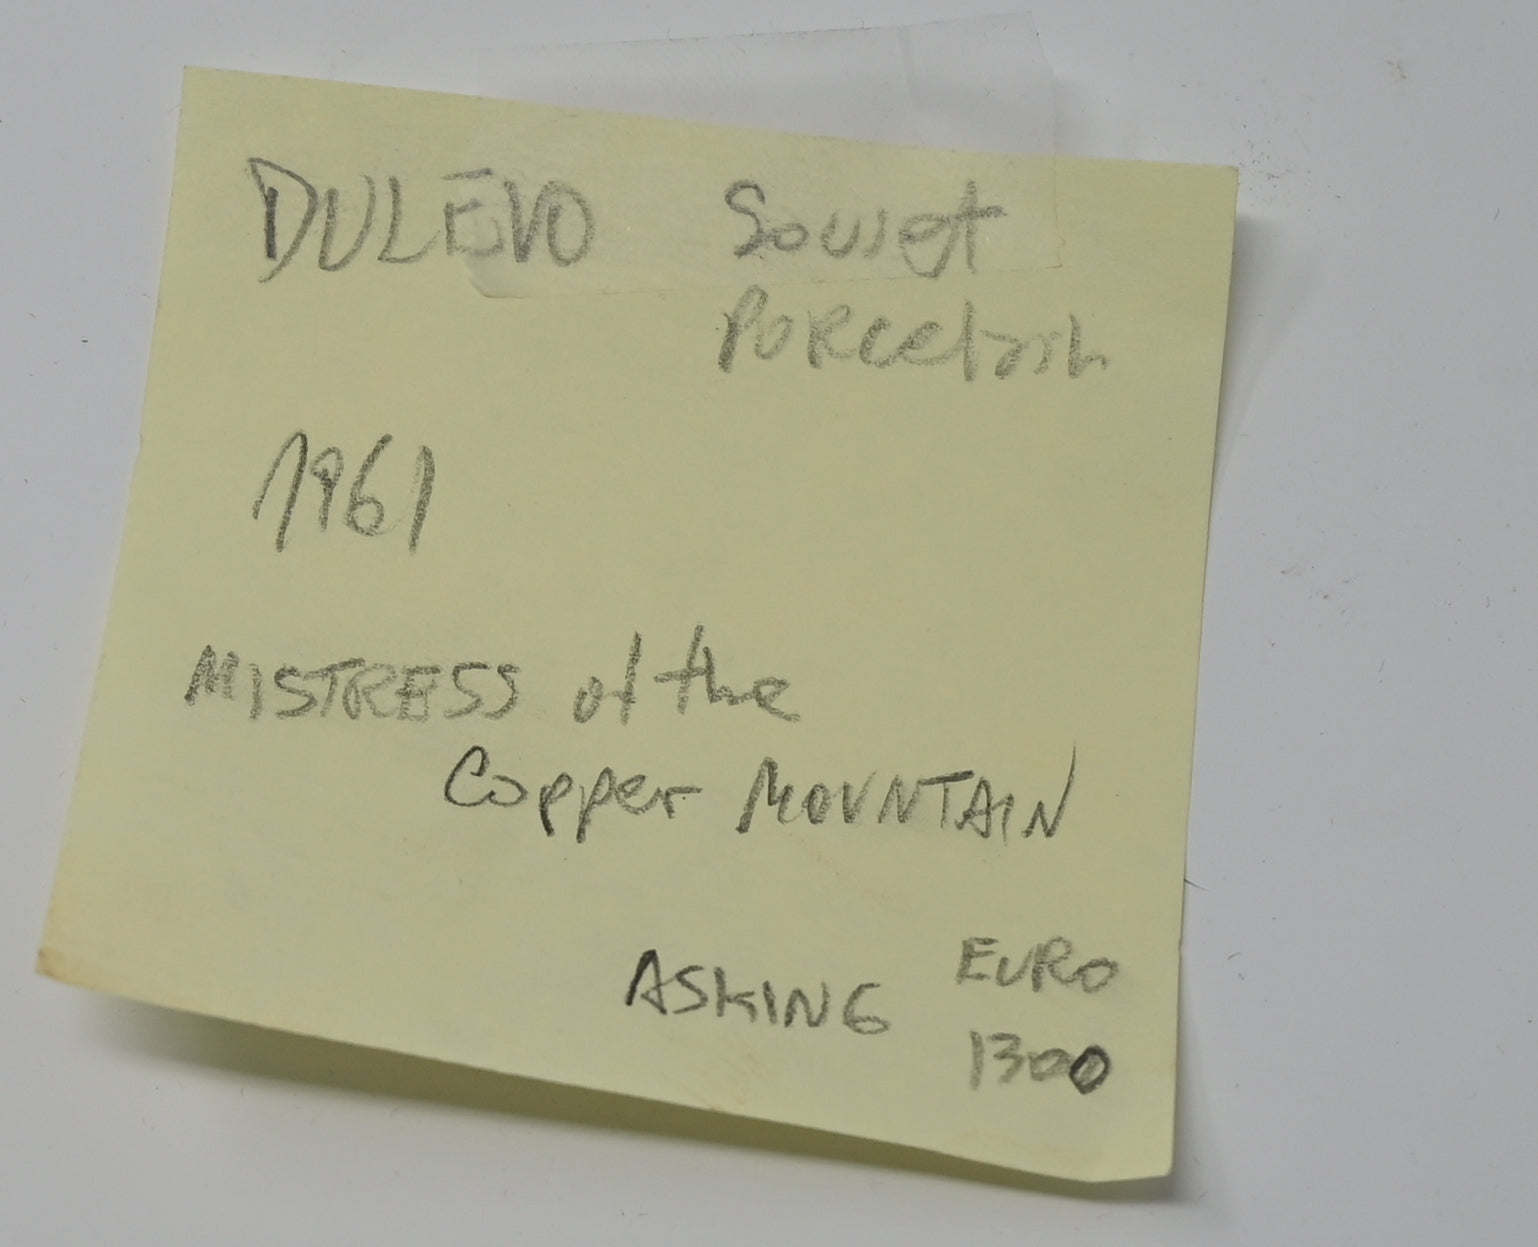 DULEVO Soviet
Porcelain
1961
MISTRESS of the
Copper MOUNTAIN
ASKING EURO
1300